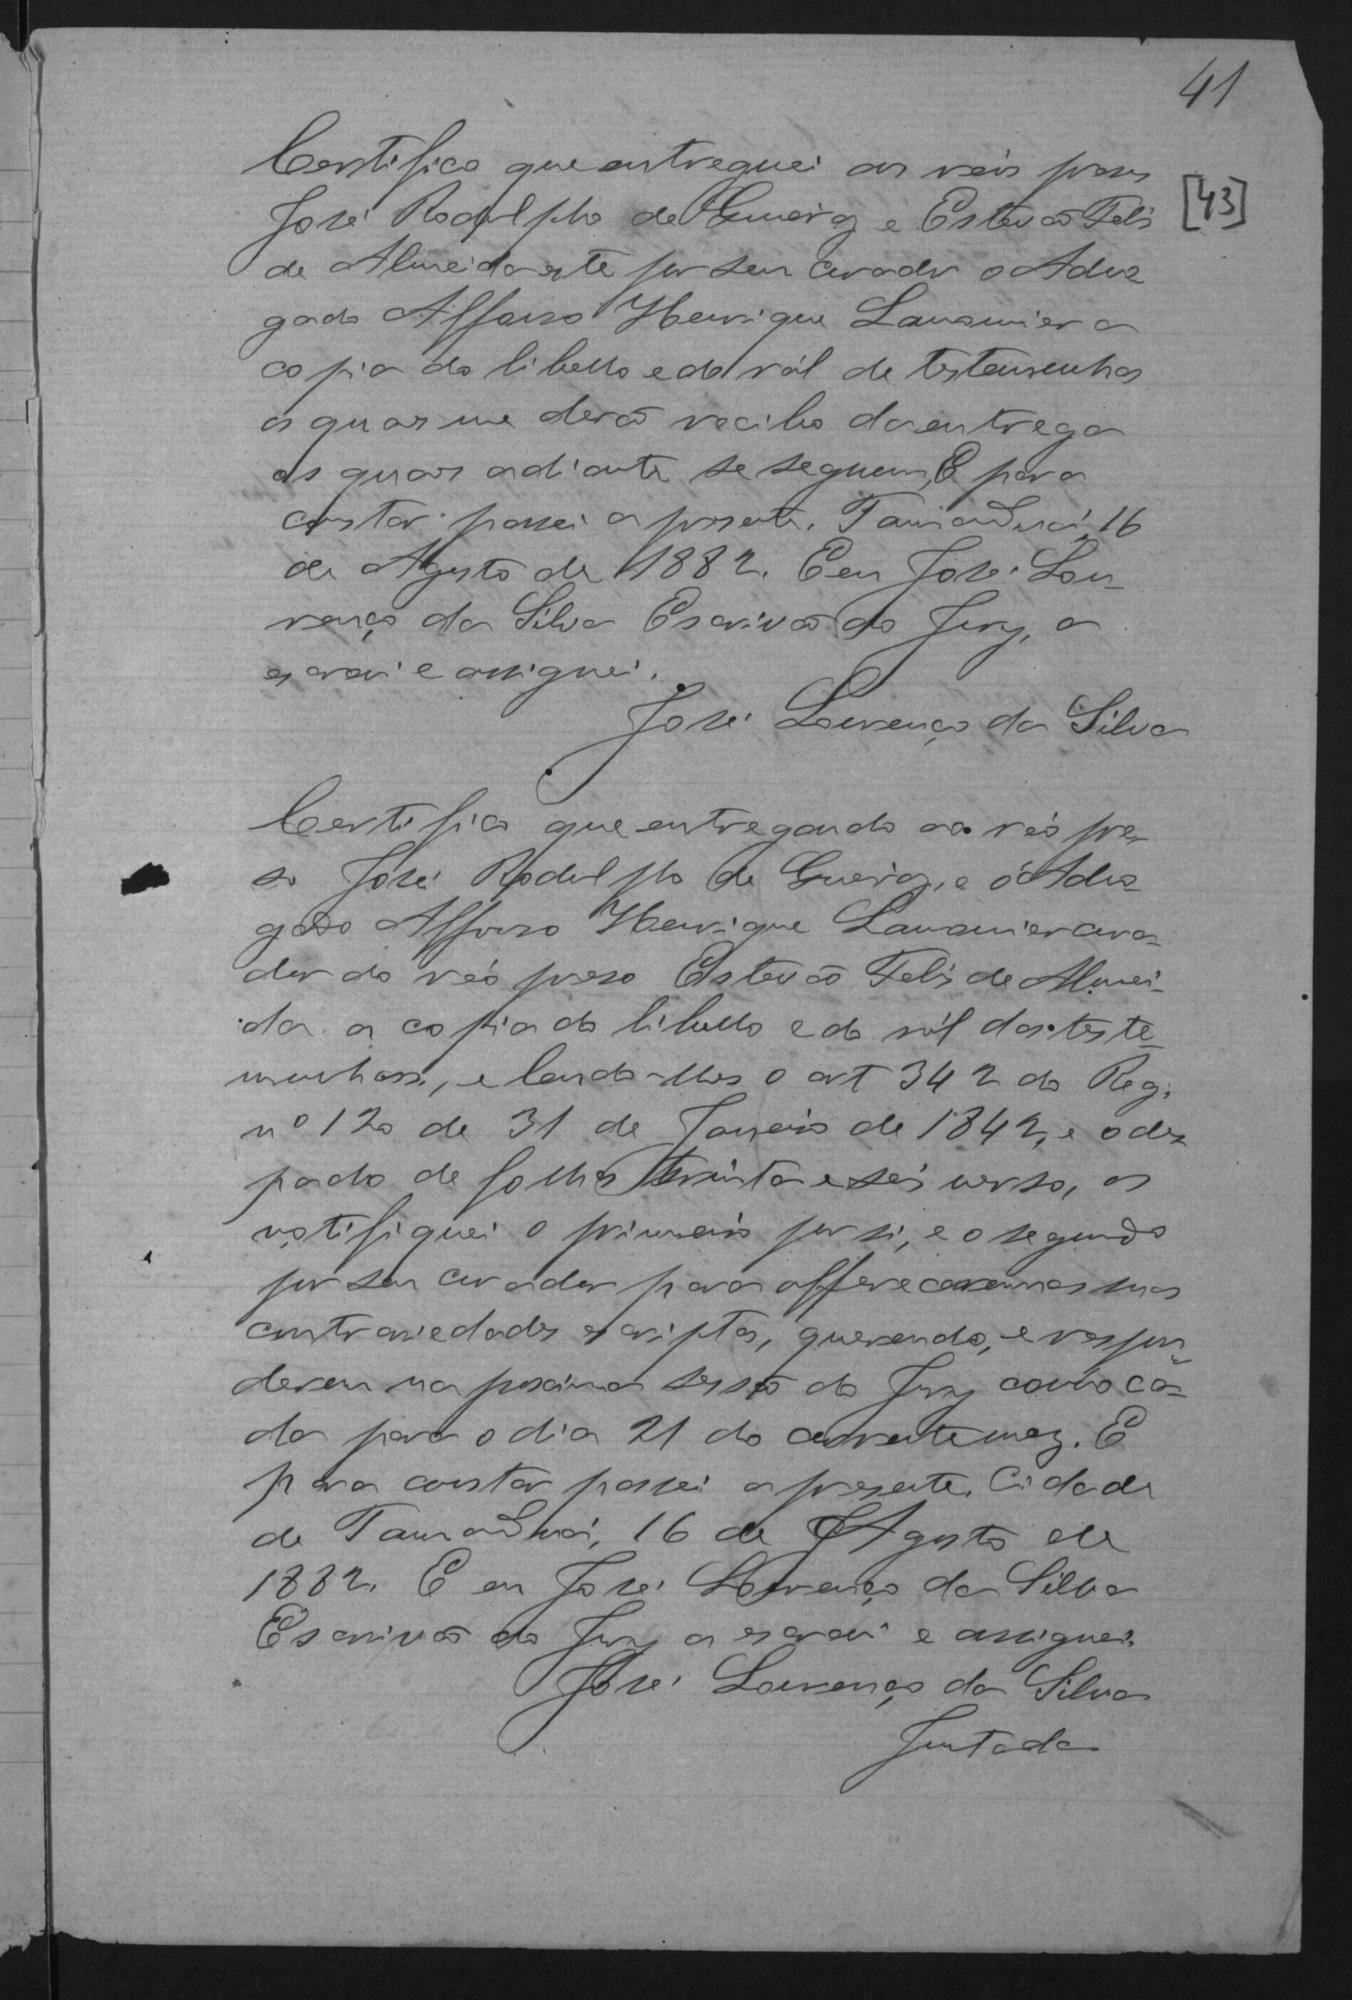 41
[43]
Certifico que entreguei aos réis presos
José Rodolpho de Queiroz e Estevão Felis
de Almeida este por seu curador o Advo
gado Affonso Henrique Lamounier a
copia do libello e do ról de testemunhas
os quaes me derão recibo da entrega
os quaes adiante se seguem, E para
constar passei a presente. Tamanduá, 16
de Agosto de 1882. E eu José Lou-
renço da Silva Escrivão do Jury, o
escrevi e assignei.
José Lourenço da Silva
Certifico que entregando ao réo pre-
so José Rodolpho de Queiroz, e o Advo-
gado Affonso Henrique Lamounier cura-
dor do réo preso Estevão Felis de Almei-
da a copia do libello e do ról das teste-
munhas, e lendo-lhes o art 342 do Reg.
nº 120 de 31 de Janeiro de 1842, e o des
pacho de folhas trinta e seis verso, os
notifiquei o primeiro por si, e o segundo
por seu curador para offerecerem as suas
contrariedades escriptas, querendo, e respon-
derem na proxima sessão do Jury convoca-
da para o dia 21 do corrente mez. E
para constar passei a presente. Cidade
de Tamanduá, 16 de Agosto de
1882. E eu José Lourenço da Silva
Escrivão do Jury o escrevi e assignei.
José Lourenço da Silva
Juntada